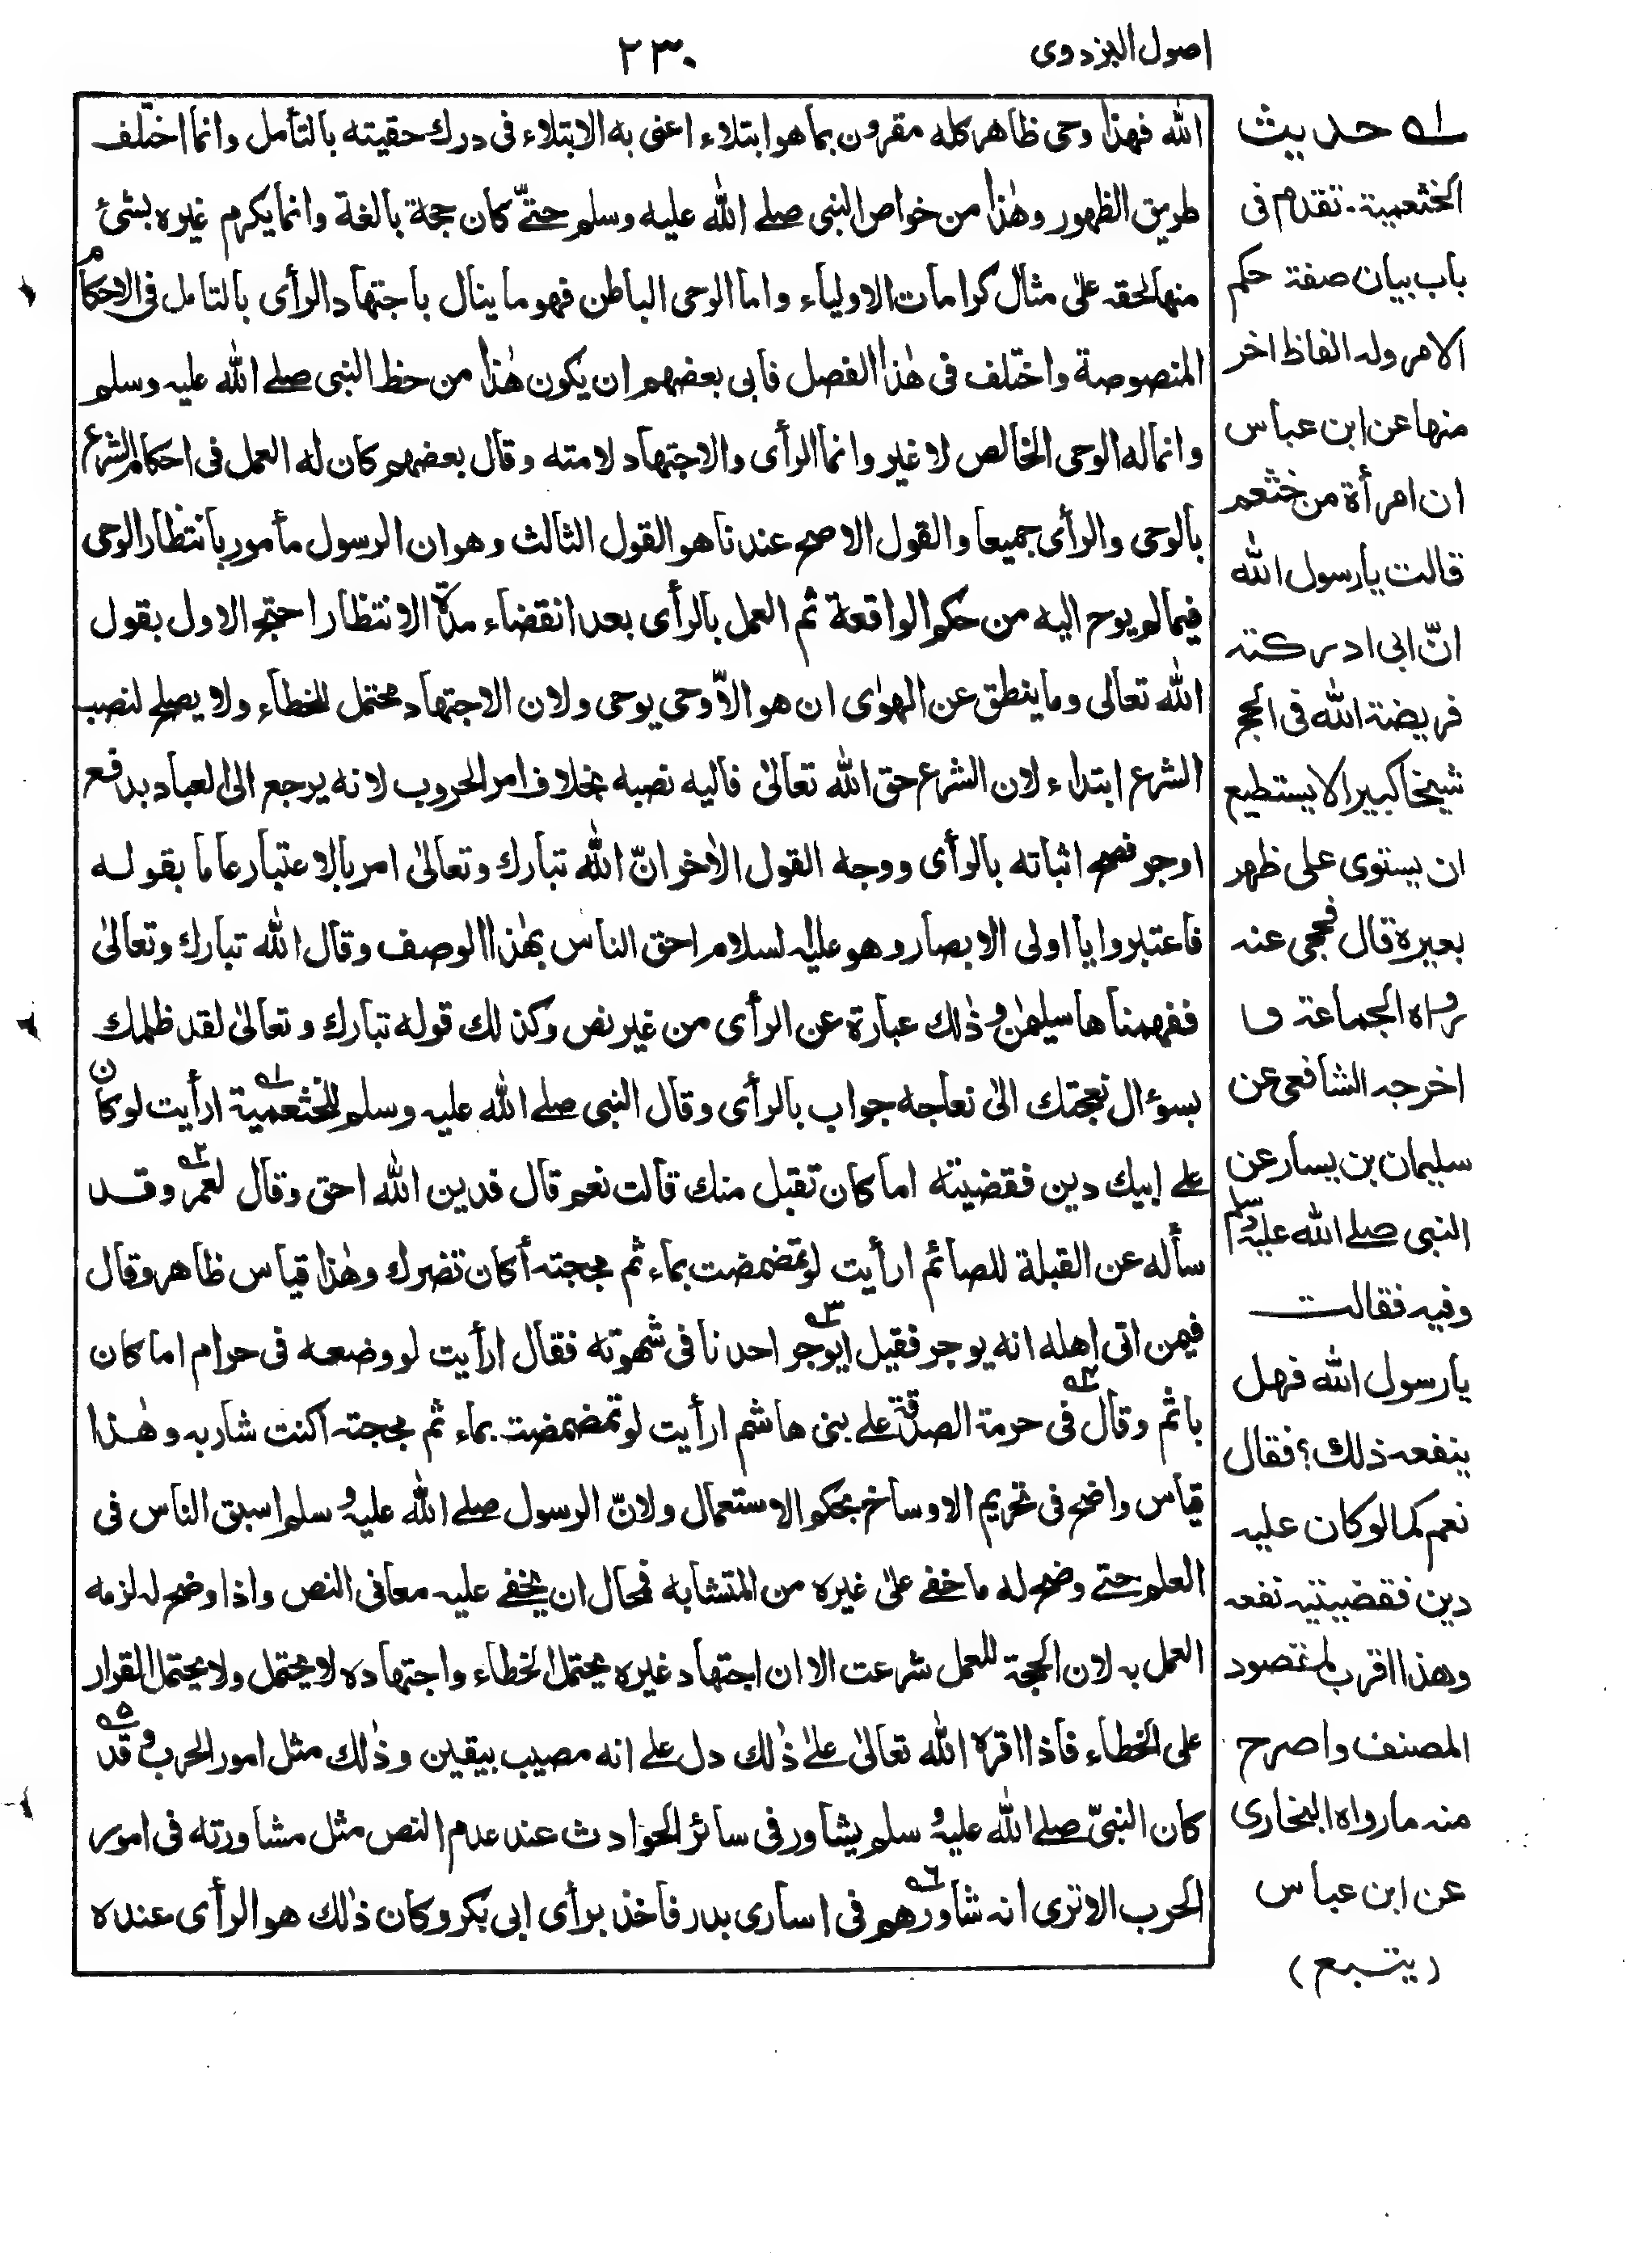 اصول البزدوی
٢٣٠
الله فهذا وحی ظاهر كله مقرون بما هو ابتلاء اعنی به الابتلاء فی درك حقيته بالتأمل وانما اختلف
طريق الظهور وهٰذا من خواص النبی صلے الله عليه وسلم حتّٰے كان حجة بالغة وانما يكرم غيره بشئ
منها لحقه علیٰ مثال كرامات الاولياء واما الوحی الباطن فهو ما ينال باجتهاد الرأی بالتامل فی الاحكام
المنصوصة واختلف فی هٰذا الفصل فابی بعضهم ان يكون هٰذا من حظ النبی صلے الله عليه وسلم
وانما له الوحی الخالص لا غير وانما الرأی والاجتهاد لامته وقال بعضهم كان له العمل فی احكام الشرع
بالوحی والرأی جميعا والقول الاصح عندنا هو القول الثالث وهو ان الرسول مأمور بانتظار الوحی
فيما لم يوح اليه من حكم الواقعة ثم العمل بالرأی بعد انقضاء مدّة الانتظار احتج الاول بقول
الله تعالی وما ينطق عن الهوٰی ان هو الاّ وحی يوحی ولان الاجتهاد محتمل للخطاء ولا يصلح لنصب
الشرع ابتداء لان الشرع حق الله تعالیٰ فاليه نصبه بخلاف امر الحروب لانه يرجع الی العباد بدفع
او جر فصح اثباته بالرأی ووجه القول الاٰخر انّ الله تبارك وتعالیٰ امر بالاعتبار عاما بقوله
فاعتبروا يا اولی الابصار وهو عليه السلام احق الناس بهٰذا الوصف وقال الله تبارك وتعالیٰ
ففهمناها سليمٰن وذٰلك عبارة عن الرأی من غير نص وكذلك قوله تبارك وتعالیٰ لقد ظلمك
بسؤال نعجتك الیٰ نعاجه جواب بالرأی وقال النبی صلے الله عليه وسلم للخثعمية ١ ارأيت لو كان
علے ابيك دين فقضيته اما كان تقبل منك قالت نعم قال فدين الله احق وقال لعمر ٢ وقد
سأله عن القبلة للصائم ارأيت لو تمضمضت بماء ثم مججته أكان تضرك وهٰذا قياس ظاهر وقال
فيمن اتی اهله انه يوجر فقيل ايوجر ٣ احدنا فی شهوته فقال ارأيت لو وضعه فی حرام اما كان
باثم وقال ٤ فی حرمة الصدقة علے بنی هاشم ارأيت لو تمضمضت بماء ثم مججته اكنت شاربه وهٰذا
قياس واضح فی تحريم الاوساخ بحكم الاستعمال ولانّ الرسول صلے الله عليه وسلم اسبق الناس فی
العلم حتے وضح له ما خفے علیٰ غيره من المتشابه فمحال ان يخفے عليه معانی النص واذا وضح له لزمه
العمل به لان الحجة للعمل شرعت الا ان اجتهاد غيره يحتمل الخطاء واجتهاده لا يحتمل ولا يحتمل القرار
علی الخطاء فاذا اقره الله تعالیٰ علےٰ ذٰلك دل علے انه مصيب بيقين وذٰلك مثل امور الحرب وقد ٥
كان النبیّ صلے الله عليه وسلم يشاور فی سائر الحوادث عند عدم النص مثل مشاورته فی امور
الحرب الا تری انه شاورهم ٦ فی اساری بدر فاخذ برأی ابی بكر وكان ذٰلك هو الرأی عنده
١ حديث
الخثعمية۔ تقدم فی
باب بيان صفة حكم
الامر وله الفاظ اخر
منها عن ابن عباس
ان امرأة من خثعم
قالت يارسول الله
انّ ابی ادركته
فريضة الله فی الحج
شيخا كبيرا لا يستطيع
ان يستوی علی ظهر
بعيره قال فحجی عنه
رواه الجماعة و
اخرجه الشافعی عن
سليمان بن يسار عن
النبی صلے الله عليه وسلم
وفيه فقالت
يارسول الله فهل
ينفعه ذلك؟ فقال
نعم كما لو كان عليه
دين فقضيتيه نفعه
وهذا اقرب لمقصود
المصنف واصرح
منه ما رواه البخاری
عن ابن عباس
(يتبع)